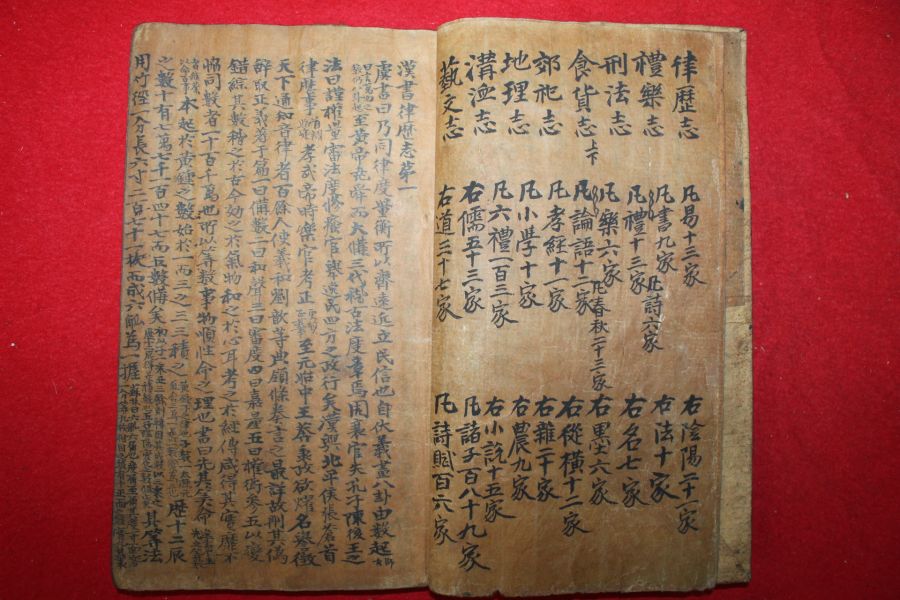 律歷志
禮樂志
刑法志
食貨志上下
郊祀志
地理志
溝洫志
藝文志
凡易十三家
凡書九家
凡詩六家
凡禮十三家
凡樂六家
凡春秋二十三家
凡論語十二家
凡孝経十一家
凡小学十家
凡六禮一百三家
右儒五十三家
右道三十七家
右陰陽二十一家
右法十家
右名七家
右墨六家
右從橫十二家
右雜二十家
右農九家
右小說十五家
凡諸子百八十九家
凡詩賦百六家
漢書律歷志第一
虞書曰乃同律度量衡所以齊遠近立民信也自伏羲畫八卦由數起
至黃帝堯舜而大備三代稽古法度章焉周衰官失孔子陳後王之
法曰謹權量審法度修廢官擧逸民四方之政行矣漢興北平侯張蒼首
律歷事孝武帝時樂官考正至元始中王莽秉政欲燿名譽徵
天下通知音律者百餘人使羲和劉歆等典領條奏言之最詳故刪其偽
辭取正義著于篇一曰備數二曰和聲三曰審度四曰嘉量五曰權衡參五以變
錯綜其數稽之於古今効之於氣物和之於心耳考之於經傳咸得其實靡不
協同數者一十百千萬也所以筭數事物順性命之理也書曰先其筭命
本起於黃鍾之數始於一而三之三三積之歷十二辰
之數十有七萬七千一百四十七而五數備矣其筭法
用竹徑一分長六寸二百七十一枚而成六觚爲一握